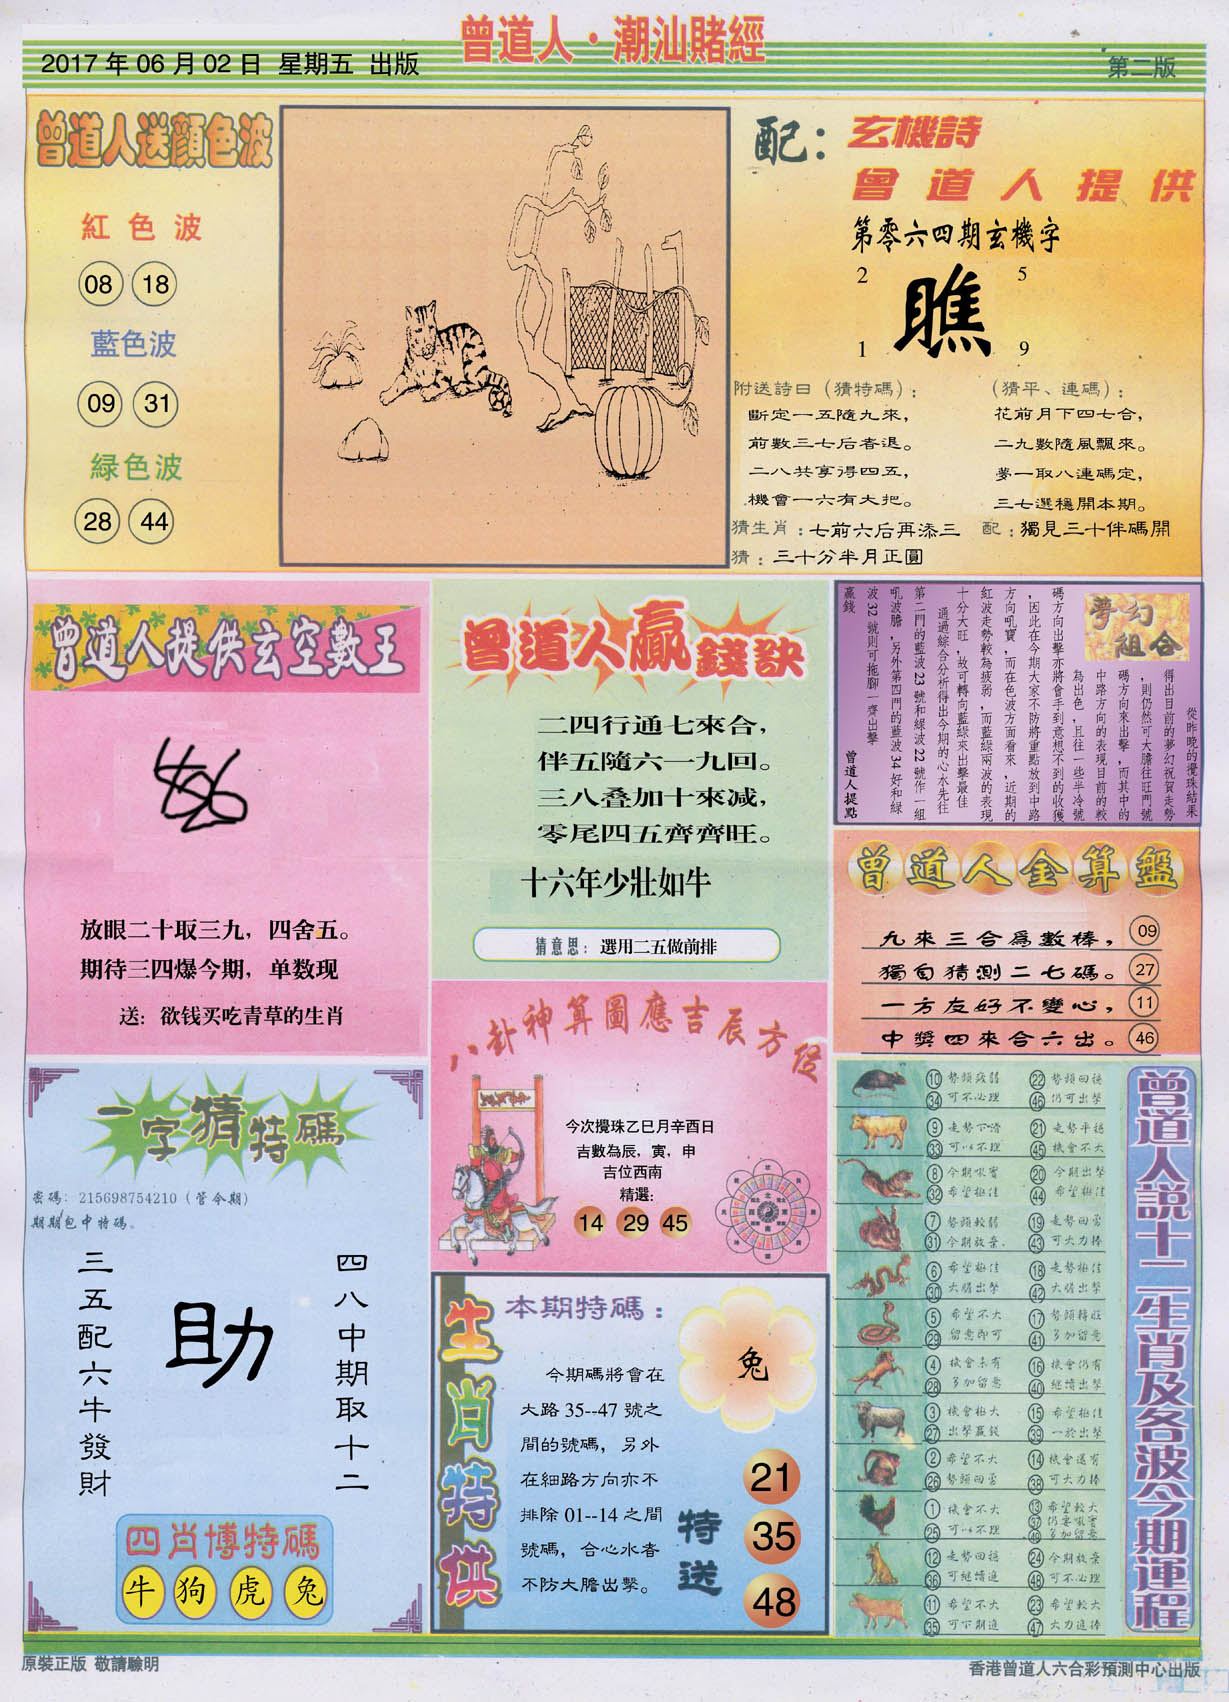 曾道人·潮汕賭經
2017年06月02日 星期五 出版
第二版
曾道人送顏色波
紅色波
08 18
藍色波
09 31
緑色波
28 44
配：玄機詩
曾道人提供
第零六四期玄機字
2 5
瞧
1 9
附送詩曰（猜特碼）：
斷定一五隨九來，
前數三七后者退。
二八共享得四五，
機會一六有大把。
（猜平、連碼）：
花前月下四七合，
二九數隨風飄來。
夢一取八連碼定，
三七選穩開本期。
猜生肖：七前六后再添三
配：獨見三十伴碼開
猜：三十分半月正圓
曾道人提供玄空數王
放眼二十取三九，四舍五。
期待三四爆今期，单数现
送：欲钱买吃青草的生肖
曾道人贏錢訣
二四行通七來合，
伴五隨六一九回。
三八叠加十來减，
零尾四五齊齊旺。
十六年少壯如牛
猜意思：選用二五做前排
夢幻組合
從昨晚的攪珠結果
得出目前的夢幻祝賀走勢
，則仍然可大膽往旺門號
碼方向來出擊，而其中的
中路方向的表現目前的較
為出色，且往一些半冷號
碼方向出擊亦將會手到意想不到的收獲
，因此在今期大家不防將重點放到中路
方向吼寶，而在色波方面看來，近期的
紅波走勢較為疲弱，而藍綠兩波的表現
十分大旺，故可轉向藍綠來出擊最佳
通過綜合分析得出今期的心水先往
第二門的藍波23號和綠波22號作一組
吼波膽，另外第四門的藍波34好和綠
波32號則可拖腳一齊出擊
贏錢
曾道人提點
曾道人金算盤
九來三合爲數棒， 09
獨自猜測二七碼。 27
一方友好不變心， 11
中獎四來合六出。 46
八卦神算圖應吉辰方位
今次攪珠乙巳月辛酉日
吉數為辰，寅，申
吉位西南
精選：
14 29 45
一字猜特碼
密碼：215698754210（管令期）
期期包中特碼。
四八中期取十二
助
三五配六牛發財
四肖博特碼
牛 狗 虎 兔
生肖特供
本期特碼：
兔
今期碼將會在
大路35--47號之
間的號碼，另外
在細路方向亦不
排除01--14之間
號碼，合心水者
不防大膽出擊。
特送
21
35
48
曾道人說十二生肖及各波今期運程
10 勢頭疲弱 22 勢頭回穩
34 可不必理 46 仍可出擊
9 走勢下滑 21 走勢平穩
33 可以不理 45 機會不大
8 今期吼寶 20 今期出擊
32 希望極佳 44 希望極佳
7 勢頭較弱 19 走勢回勇
31 今期放棄 43 可大力棒
6 希望極佳 18 走勢極佳
30 大膽出擊 42 大膽出擊
5 希望不大 17 勢頭轉旺
29 留意即可 41 多加留意
4 機會未有 16 機會仍有
28 多加留意 40 繼續出擊
3 機會極大 15 希望極佳
27 出擊贏錢 39 一於出擊
2 希望不大 14 機會還有
26 勢頭回勇 38 可大力棒
1 機會不大 13 希望較大
25 可以不理 37 仍要吼實
49 多加留意
12 走勢回穩 24 今期放棄
36 可繼續追 48 可不必理
11 希望不大 23 希望較大
35 可下期追 47 大力追棒
原裝正版 敬請驗明
香港曾道人六合彩預測中心出版